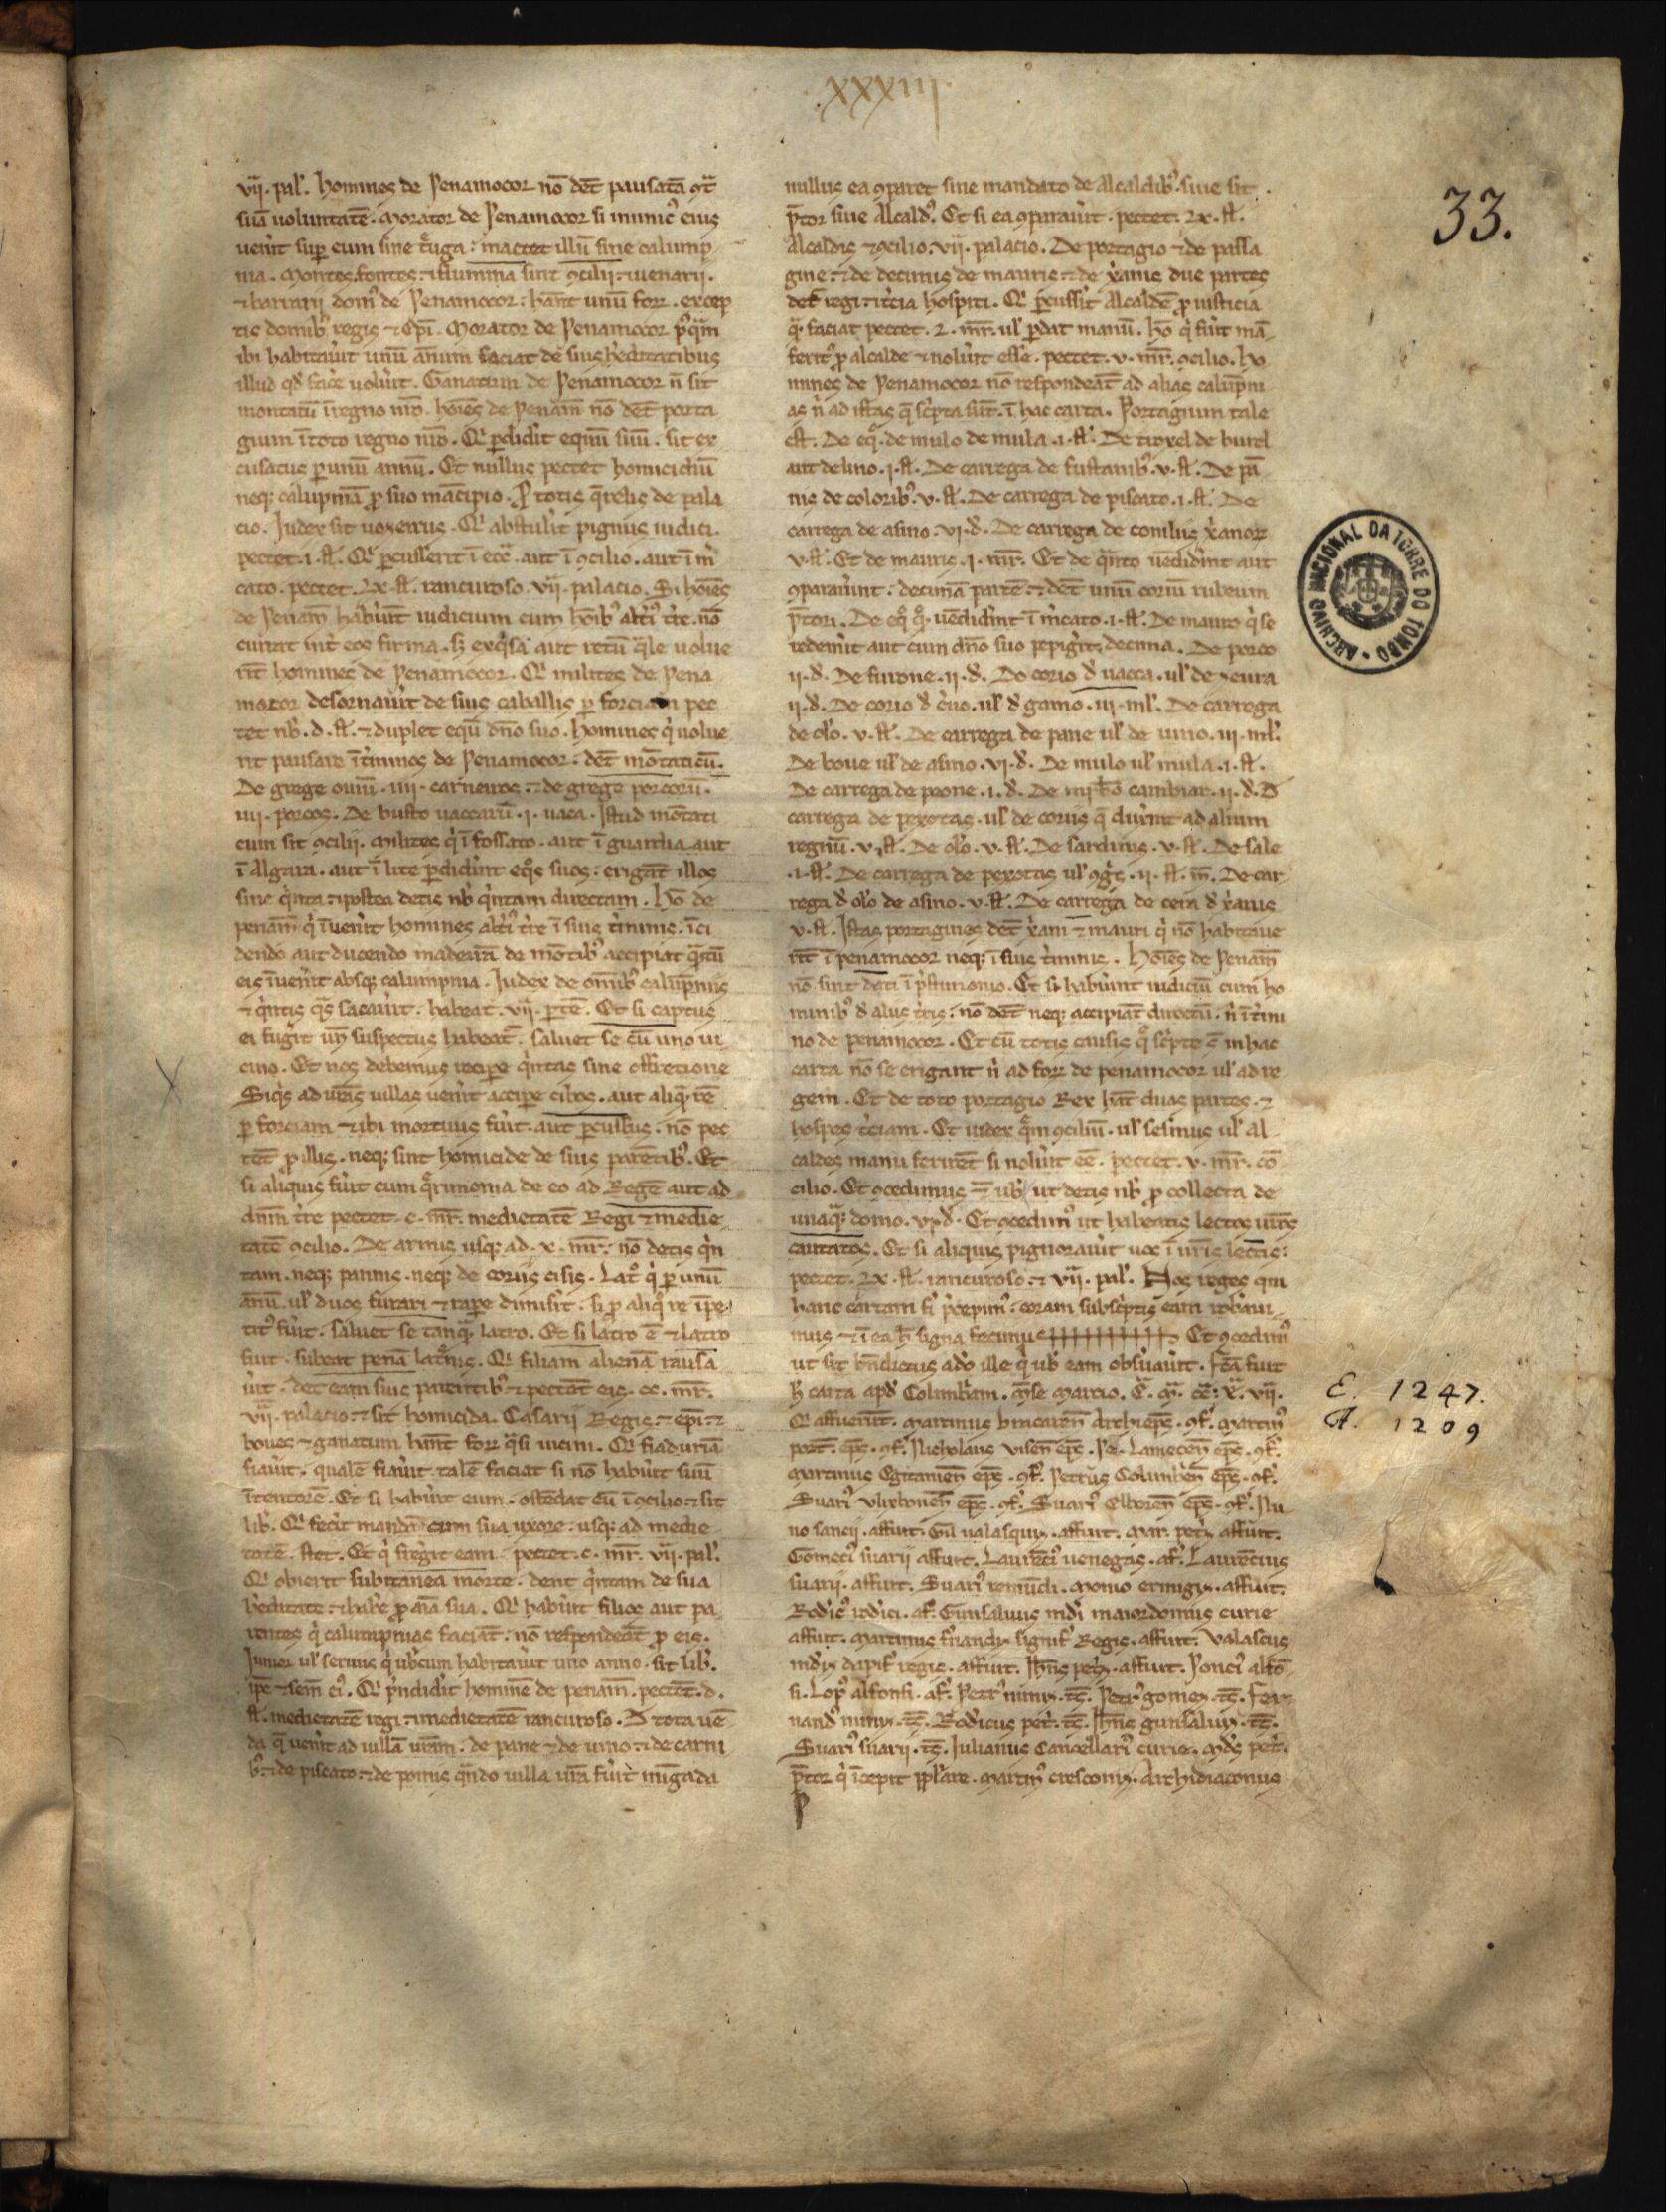 .XXXIII.
33.
vii. pal'. homines de Penamocor nō dēt pausatā 9t̄
suā uoluntatē. Morator de Penamocor si inimic9 eius
uen̄it sup eum sine t̄uga: mactet illū sine calump
nia. Montes. fontes. ⁊ flumina sint 9cilii. ⁊ uenarii.
⁊ barrarii dom9 de Penamocor: hānt unū forr. excep
tis domib9 regis ⁊ ep̄i. Morator de Penamocor p9qām
ibi habitau̓it unū annum faciat de suis h̓editatibus
illud qd̓ fac̓e uolu̓it. Ganatum de Penamocor n̄ sit
montatū ī regno nr̄o. hōiēs de Penam̄ nō dēt porta
gium ī toto regno nr̄o. Q̓ pdidit equū suū. sit ex
cusatus p unū annū. Et nullus pectet homicidiū
neq; calupniā p suo mācipio. P totis q̄relis de pala
cio. Iudex sit uozeirus. Q̓ abstulit pignus iudici.
pectet. i. ſt. Q̓ pcusserit ī eccā. aut ī 9cilio. aut ī m̓
cato. pectet. Lx. ſt. rancuroso. vii. palacio. Si hōiēs
de Penam̄ habu̓it iudicium cum hōib9 alt̓i9 t̓re. nō
currat int̓ eos firma. sȝ exq̓sa aut retū q̄le uolue
rīt homines de Penamocor. Q̓ milites de Pena
mocor desornau̓it de suis caballis p forciam pec
tet nb̓. d. ſt. ⁊ duplet equū dn̄o suo. homines q̓ uolue
rīt pausare ī t̓minos de Penamocor: dēt mōtaticū.
De grege ouiū. iiii. carneiros. ⁊ de grege porcorū.
iiii. porcos. De busto uaccarū. i. uaca. Istud mōtati
cum sit 9cilii. Milites q̓ ī fossato. aut ī guardia aut
ī Algara. aut ī lite pdidint eq̓s suos: erigāt illos
sine q̓nta. ⁊ postea detis nb̓ q̓ntam directam. hō de
penam̄ q̓ īuen̓it homines alt̓i9 t̓re ī suis t̓minis. īci
dendo aut ducendo madeirā de mōtib9 accipiat q̄ntū
eis īuen̓it absq; calumpnia. Iudex de omīb9 calūpniis
⁊ q̓ntis q̄s sacau̓it. habeat. vii. ptē. Et si captus
ei fug̓it un̄ suspectus habeat̄. saluet se cū uno ui
cino. Et nos debemus recipe q̓ntas sine offretione
Siq̓s ad ur̄as uillas uen̓it accipe cibos. aut aliq̓. rē
p forciam ⁊ ibi mortuus fūit. aut pcussus. nō pec
tēt p illis. neq; sint homicide de suis parētib9. Et
si aliquis fūit cum q̄rimonia de eo ad Regē aut ad
dn̄m t̓re pectet. c. mr̄. medietatē Regi ⁊ medie
tatē 9cilio. De armis usq; ad. x. mr̄. nō detis q̓n
tam. neq; pannis. neq; de coriis cisis. Lat̓o q̓ p unū
annū. ul̓ duos furari ⁊ rape dimisit. si p aliq̓ re īpe
tit9 fūit. saluet se tanq̄ latro. Et si latro ē ⁊ latro
fuit. subeat penā lat̓onis. Q̓ filiam alienā rausa
ūit. det eam suis parētib9 ⁊ pectēt eis. cc. mr̄.
vii. palacio: ⁊ sit homicida. Casarii Regis. ⁊ ep̄i: ⁊
boues ⁊ ganatum hānt forr q̄si uicini. Q̓ fiaduriā
fiau̓it. qualē fiau̓it talē faciat si nō habu̓it suū
ītentorē. Et si habu̓it eum. ostēdat eū ī 9cilio ⁊ sit
lib̓. Q̓ fec̓it mandā cum sua uxore: usq; ad medie
tatē. stet. Et q̓ freg̓it eam. pectet. c. mr̄. vii. pal̓.
Q̓ obierit subitanea morte. dent q̓ntam de sua
h̓editate. ⁊ hab̓e p aīa sua. Q̓ habu̓it filios aut pa
rentes q̓ calumpnias faciāt: nō respondeāt p eis.
Iunior ul̓ seruus q̓ ub̓cum habitau̓it uno anno. sit lib̓.
ipe ⁊ sem̄ ei9. Q̓ p̄ndidit homine de penam̄. pectet. d.
ſt. medietatē regi ⁊ medietatē rancuroso. D̓ tota uē
da q̄ uen̓it ad uillā ur̄am: de pane ⁊ de uino. ⁊ de carni
b9. ⁊ de piscato. ⁊ de pomis q̄ndo uilla ur̄a fūit mīgada
nullus ea 9paret sine mandato de Alcaldib9. siue sit
p̄tor siue Alcald9. Et si ea 9parau̓it. pectet. Lx. ſt.
Alcaldis ⁊ 9cilio. vii. palacio. De portagio ⁊ de passa
gine. ⁊ de decimis de mauris. ⁊ de x̓anis due partes
det̄ regi. ⁊ t̓cia hospiti. Q̓ pcussit Alcaldē p iusticia
q̄. faciat pectet. L. mr̄. ul̓ pdat manū. hō q̓ fūit mā
ferit9 p alcalde ⁊ nolu̓it esse. pectet. v. mr̄. 9cilio. ho
mines de Penamocor nō respondeāt ad alias calūpni
as n̓ ad istas q̄ sc̓pta sūt. ī hac carta. Portagium tale
est. De eq̓. de mulo de mula. i. ſt. De troxel de burel
aut de lino. i. ſt. De carrega de fustanib9. v. ſt. De pā
nis de colorib9. v. ſt. De carrega de piscato. i. ſt. De
carrega de asino. vi. d̓. De carrega de conilius x̓anoꝝ
v. ſt. Et de mauris. i. mr̄. Et de q̄nto uēdidint aut
9parau̓int: decimā partē: ⁊ dēt unū coriū rubeum
p̄tori. De eq̓ q̓. uēdidint ī m̓cato. i. ſt. De mauro q̓ se
redem̓it aut cum dn̄o suo pepig̓it; decima. De porco
ii. d̓. De furone. ii. d̓. De corio d̓ uacca. ul̓ de zeura
ii. d̓. De corio d̓ c̓uo. ul̓ d̓ gamo. iii. ml̓. De carrega
de ol̓o. v. ſt. De carrega de pane ul̓ de uino. iii. ml̓.
De boue ul̓ de asino. vi. d̓. De mulo ul̓ mula. i. ſt.
De carrega de peone. i. d̓. De
carrega de pexotas. ul̓ de coriis q̄ dux̓int ad alium
regnū. v. ſt. De ol̓o. v. ſt. De sardinis. v. ſt. De sale
.i. ſt. De carrega de pexotas ul̓ 9g̓s. ii. ſt. m̄. De car
rega d̓ ol̓o de asino. v. ſt. De carrega de cera d̓ x̓anis
v. ſt. Istas portagines dēt x̓ani ⁊ mauri q̓ nō habitaue
rīt ī penamocor neq; ī suis t̓minis. hōiēs de Penam̄
nō sint dati ī p̓stimonio. Et si habu̓int iudiciū cum ho
minib9 d̓ aliis t̓ris: nō dēt neq; accipiāt directū. n̓ ī t̓mi
no de penamocor. Et cū totis causis q̓ sc̓pte ē in hac
carta nō se erigant n̓ ad forr de penamocor ul̓ ad re
gem. Et de toto portagio Rex hāt duas partes. ⁊
hospes t̓ciam. Et iudex q̄m 9ciliū. ul̓ sesimus ul̓ al
caldes manu feru̓nt si nolu̓it eē. pectet. v. mr̄. cō
cilio. Et 9cedimus ub̓ ut detis nb̓ p collecta de
unaq̄q; domo. vi. d̓. Et 9cedim9 ut habeatis lectos ur̄os
cautatos. Et si aliquis pignorau̓it uos ī ur̄is lectis:
pectet. Lx. ſt. rancuroso. ⁊ vii. pal̓. Nos reges qui
hanc cartam fi̓ p̓cepim9: coram subsc̓ptis eam robaui
mus ⁊ ī ea h̓ signa fecimus ++++++++++ Et 9cedim9
ut sit bn̄dictus a do ille q̓ ub̓ eam obs̓uau̓it. Fc̄a fuit
h̓ carta apd̓ Colimb̓am. m̓se marcio. E. M. CC. X. vii.
Q̓ affuer̄nt. Martinus bracaren̄ Archiep̄s. 9f̓. Martin9
port̄. ep̄s. 9f̓. Nicholaus visen̄ ep̄s. Pe. Lamecen̄ ep̄s. 9f̓.
Martinus Egitanien̄ ep̄s. 9f̓. Petrus Colimb̓en̄ ep̄s. 9f̓.
Suari9 Vlixbonen̄ ep̄s. 9f̓. Suari9 Elboren̄ ep̄s. 9f̓. Nu
no sancii. affuit. Gil ualasquiz. affuit. Mar. pet̓z affuit.
Gomeci9 suarii affuit. Laurēci9 uenegas. af̓. Laurēcius
suarii. affuit. Suari9 remūdi. Monio ermigiz. affuit.
Rod̓ic9 rod̓ici. af̓. Gunsaluus m̄di maiordomus curie
affuit. Martinus f̓nandiz signif̓ Regis. affuit. Valascus
m̄diz dapif̓ regis. affuit. Ioh̄s pet̓z. affuit. Ponci9 alfō
si. Lop9 alfonsi. af̓. Petr9 nuniz. ts̄. Petr9 gomez. ts̄. Fer
nand9 nuniz. ts̄. Rod̓icus pet̓. ts̄. Ioh̄s gunsaluiz. ts̄.
Suari9 suarii. ts̄. Iulianus Cancellari9 curie. Md̓s pet̓.
p̄tor q̓ īcepit pplare. Martin9 cresconiz. Archidiaconus
E. 1247.
A. 1209
ARCHIVO NACIONAL DA TORRE DO TOMBO